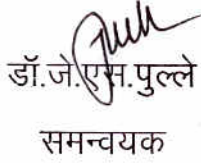 डॉ.जे.एस.पुल्ले
समन्वयक